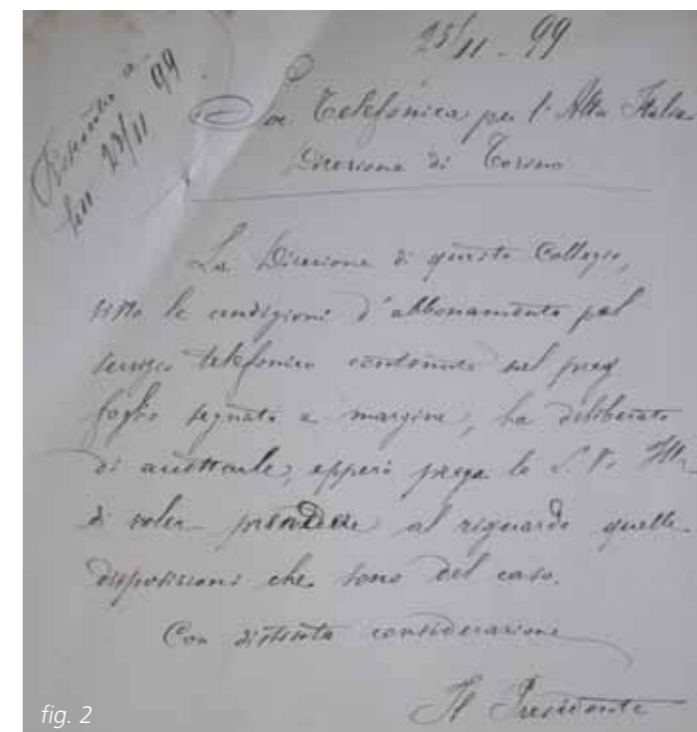 25/11 - 99
Riscontro a
. 23/11 99
Soc Telefonica per l'Alta Italia
Direzione di Torino
La Direzione di questo Collegio,
viste le condizioni d'abbonamento pel
servizio telefonico contenute nel preg
foglio segnato a margine, ha deliberato
di accettarle, epperò prega la S. V. Ill
di voler prendere al riguardo quelle
disposizioni che sono del caso.
Con distinta considerazione
Il Presidente
fig. 2